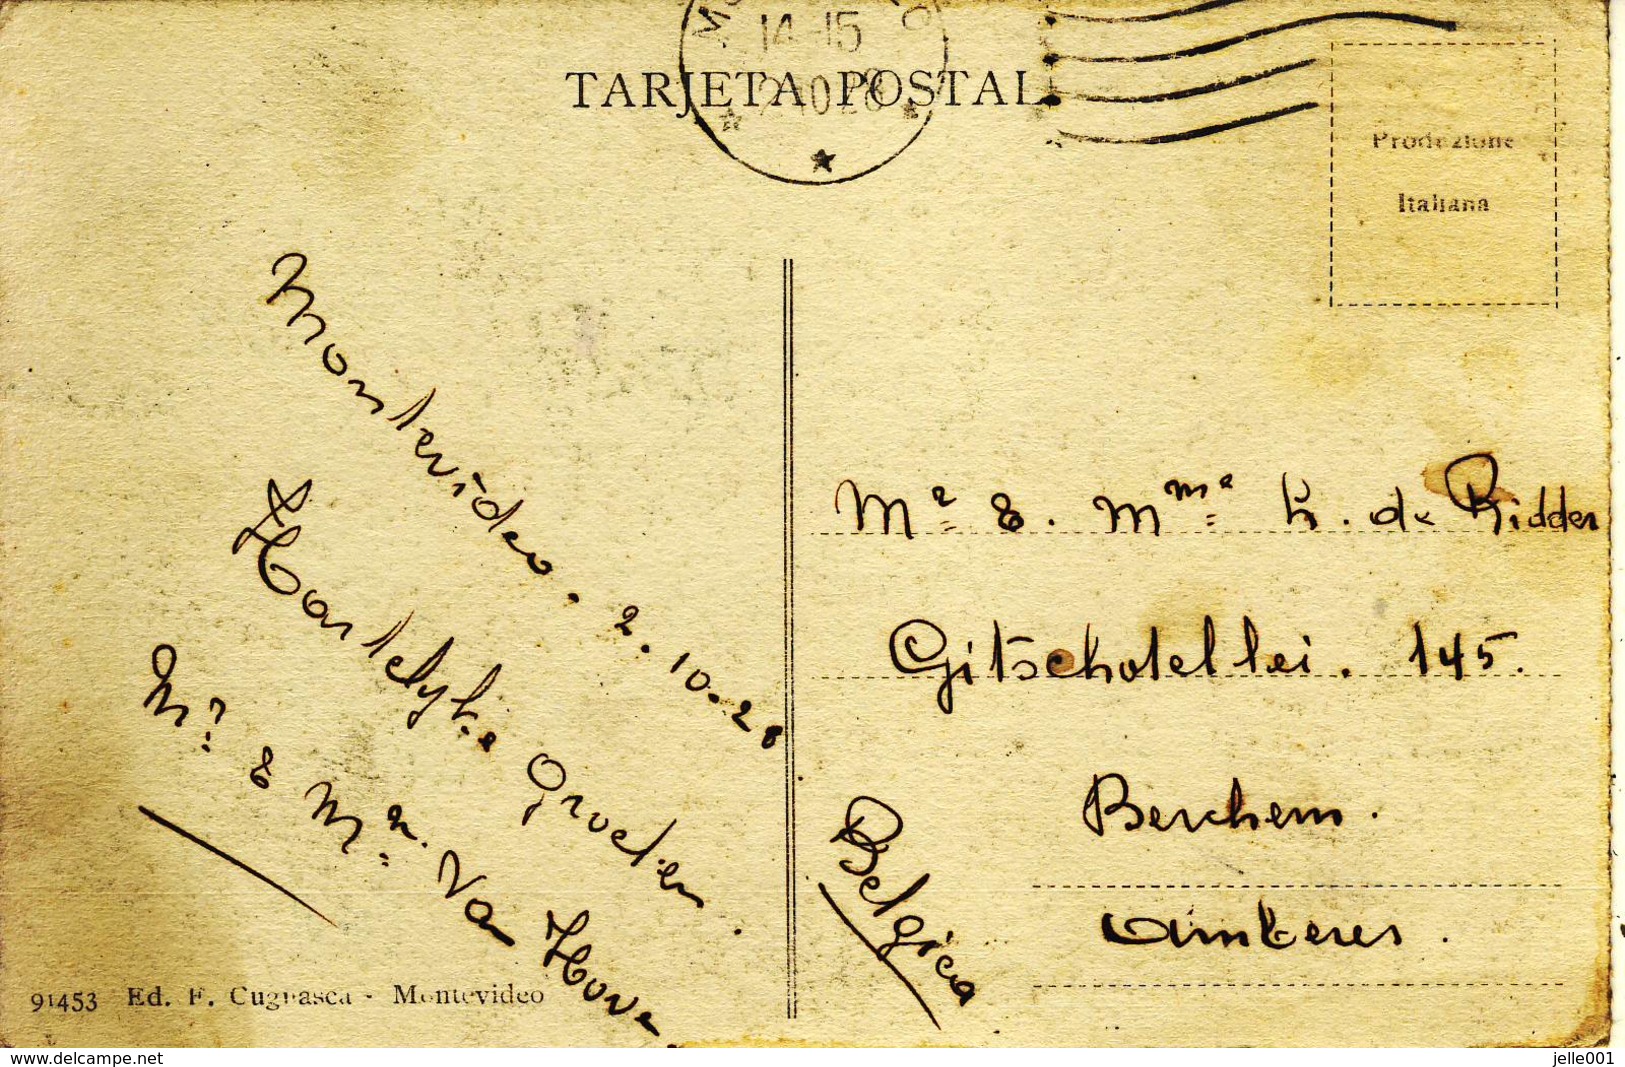 14-15
TARJETA POSTAL
2 10 28
Produzione
Italiana
Montevideo. 2.10.28
Hartelyke Groeten.
Mr & Ma. Van Hove
Mr & Mme h. de Ridder
Gitschotellei. 145.
Berchem.
Amberes.
Belgica
91453 Ed. F. Cugnasca - Montevideo
www.delcampe.net
jelle001